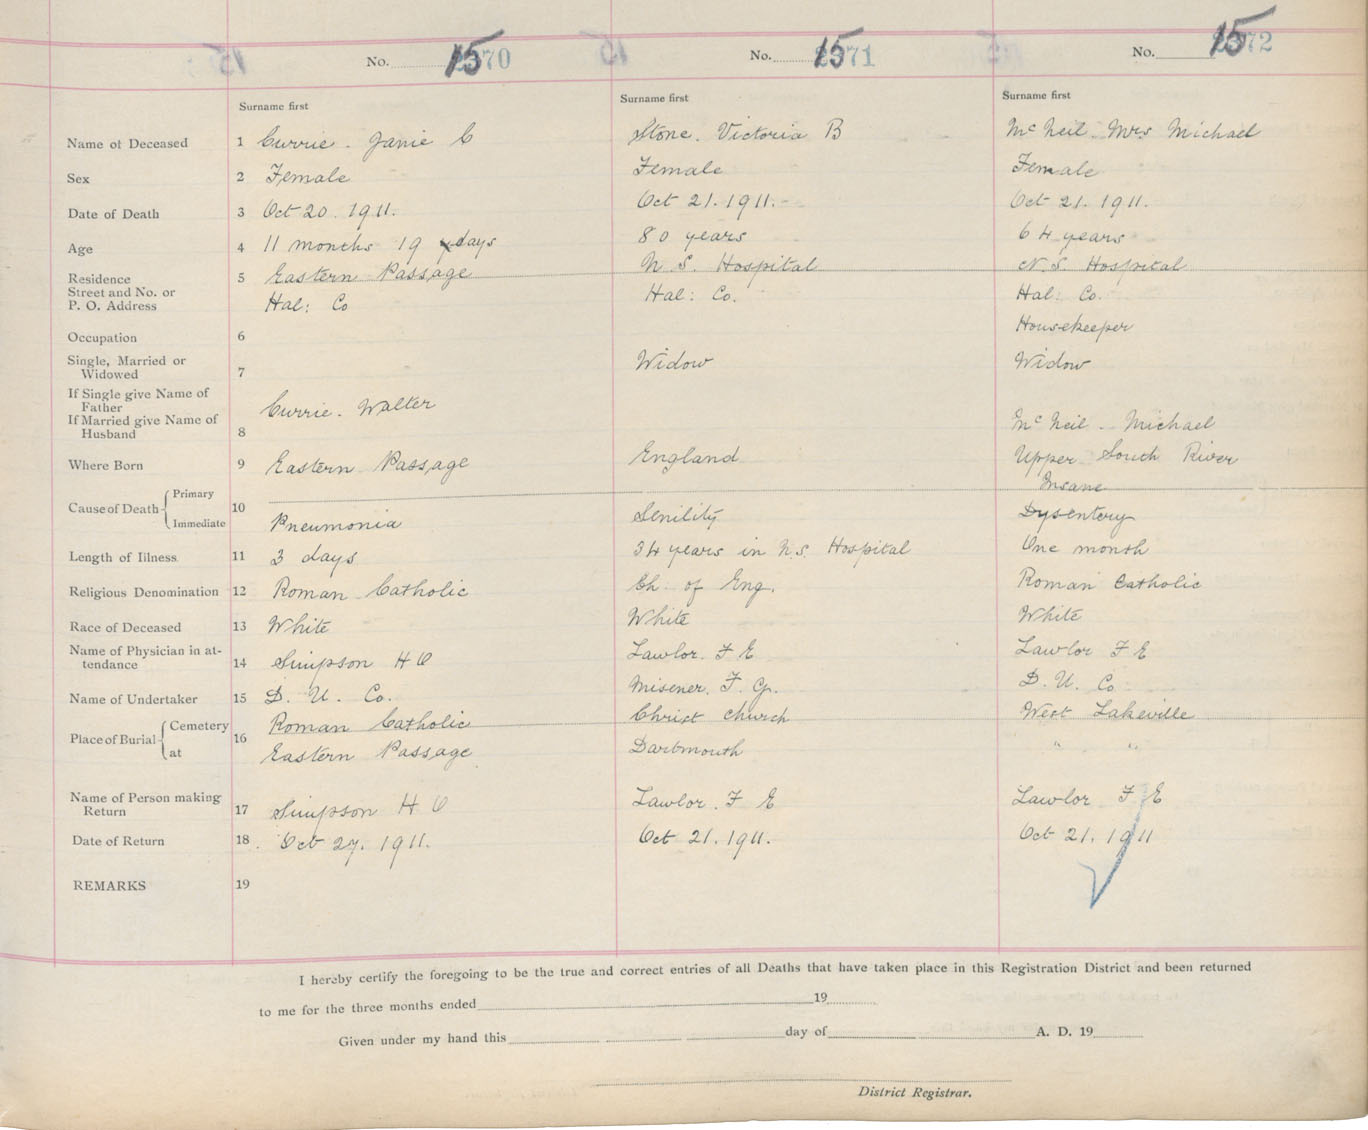 No. 1570
No. 1571
No. 1572
Surname first
Surname first
Surname first
Name of Deceased 1 Currie. Janie C
Stone. Victoria B
McNeil. Mrs Michael
Sex 2 Female
Female
Female
Date of Death 3 Oct 20. 1911.
Oct 21. 1911.
Oct 21. 1911.
Age 4 11 months 19 days
80 years
64 years
Residence
Street and No. or
P. O. Address
5 Eastern Passage
Hal: Co
N. S. Hospital
Hal: Co.
N. S. Hospital
Hal: Co.
Occupation 6
Housekeeper
Single, Married or
Widowed 7
Widow
Widow
If Single give Name of
Father
If Married give Name of
Husband 8
Currie. Walter
McNeil. Michael
Where Born 9 Eastern Passage
England
Upper South River
Cause of Death Primary
Immediate
10 Pneumonia
Senility
Insane
Dysentery
Length of Illness 11 3 days
34 years in N.S. Hospital
One month
Religious Denomination 12 Roman Catholic
Ch. of Eng.
Roman Catholic
Race of Deceased 13 White
White
White
Name of Physician in at-
tendance 14 Simpson H O
Lawlor. F E
Lawlor F E
Name of Undertaker 15 D. U. Co.
Misener. F. G.
D. U. Co
Place of Burial Cemetery
at
16 Roman Catholic
Eastern Passage
Christ Church
Dartmouth
West Lakeville
" "
Name of Person making
Return 17 Simpson H O
Lawlor. F E
Lawlor F E
Date of Return 18 Oct 27. 1911.
Oct 21. 1911.
Oct 21. 1911
REMARKS 19
I hereby certify the foregoing to be the true and correct entries of all Deaths that have taken place in this Registration District and been returned
to me for the three months ended 19
Given under my hand this day of A. D. 19
District Registrar.